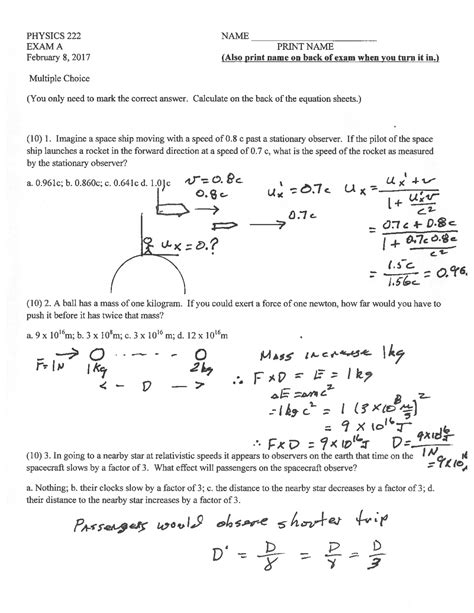 PHYSICS 222 NAME
EXAM A PRINT NAME
February 8, 2017 (Also print name on back of exam when you turn it in.)
Multiple Choice
(You only need to mark the correct answer. Calculate on the back of the equation sheets.)
(10) 1. Imagine a space ship moving with a speed of 0.8 c past a stationary observer. If the pilot of the space
ship launches a rocket in the forward direction at a speed of 0.7 c, what is the speed of the rocket as measured
by the stationary observer?
a. 0.961c; b. 0.860c; c. 0.641c d. 1.01c
v = 0.8c
0.8c
u'x = 0.7c
0.7c
ux = 0.?
ux = u'x + v / 1 + u'xv/c²
= 0.7c + 0.8c / 1 + 0.7c 0.8c/c²
= 1.5c / 1.56c = 0.96
(10) 2. A ball has a mass of one kilogram. If you could exert a force of one newton, how far would you have to
push it before it has twice that mass?
a. 9 x 10¹⁶m; b. 3 x 10⁸m; c. 3 x 10¹⁶ m; d. 12 x 10¹⁶m
F = 1N
1kg
2kg
< - D - >
Mass increase 1kg
∴ F x D = E = 1kg
ΔE = Δmc²
= 1kg c² = 1 (3 x 10⁸ m/s)²
= 9 x 10¹⁶ J
∴ F x D = 9 x 10¹⁶ J D = 9x10¹⁶ J / 1N
= 9x10¹⁶
(10) 3. In going to a nearby star at relativistic speeds it appears to observers on the earth that time on the
spacecraft slows by a factor of 3. What effect will passengers on the spacecraft observe?
a. Nothing; b. their clocks slow by a factor of 3; c. the distance to the nearby star decreases by a factor of 3; d.
their distance to the nearby star increases by a factor of 3.
Passengers would observe shorter trip
D' = D/γ = D/γ = D/3